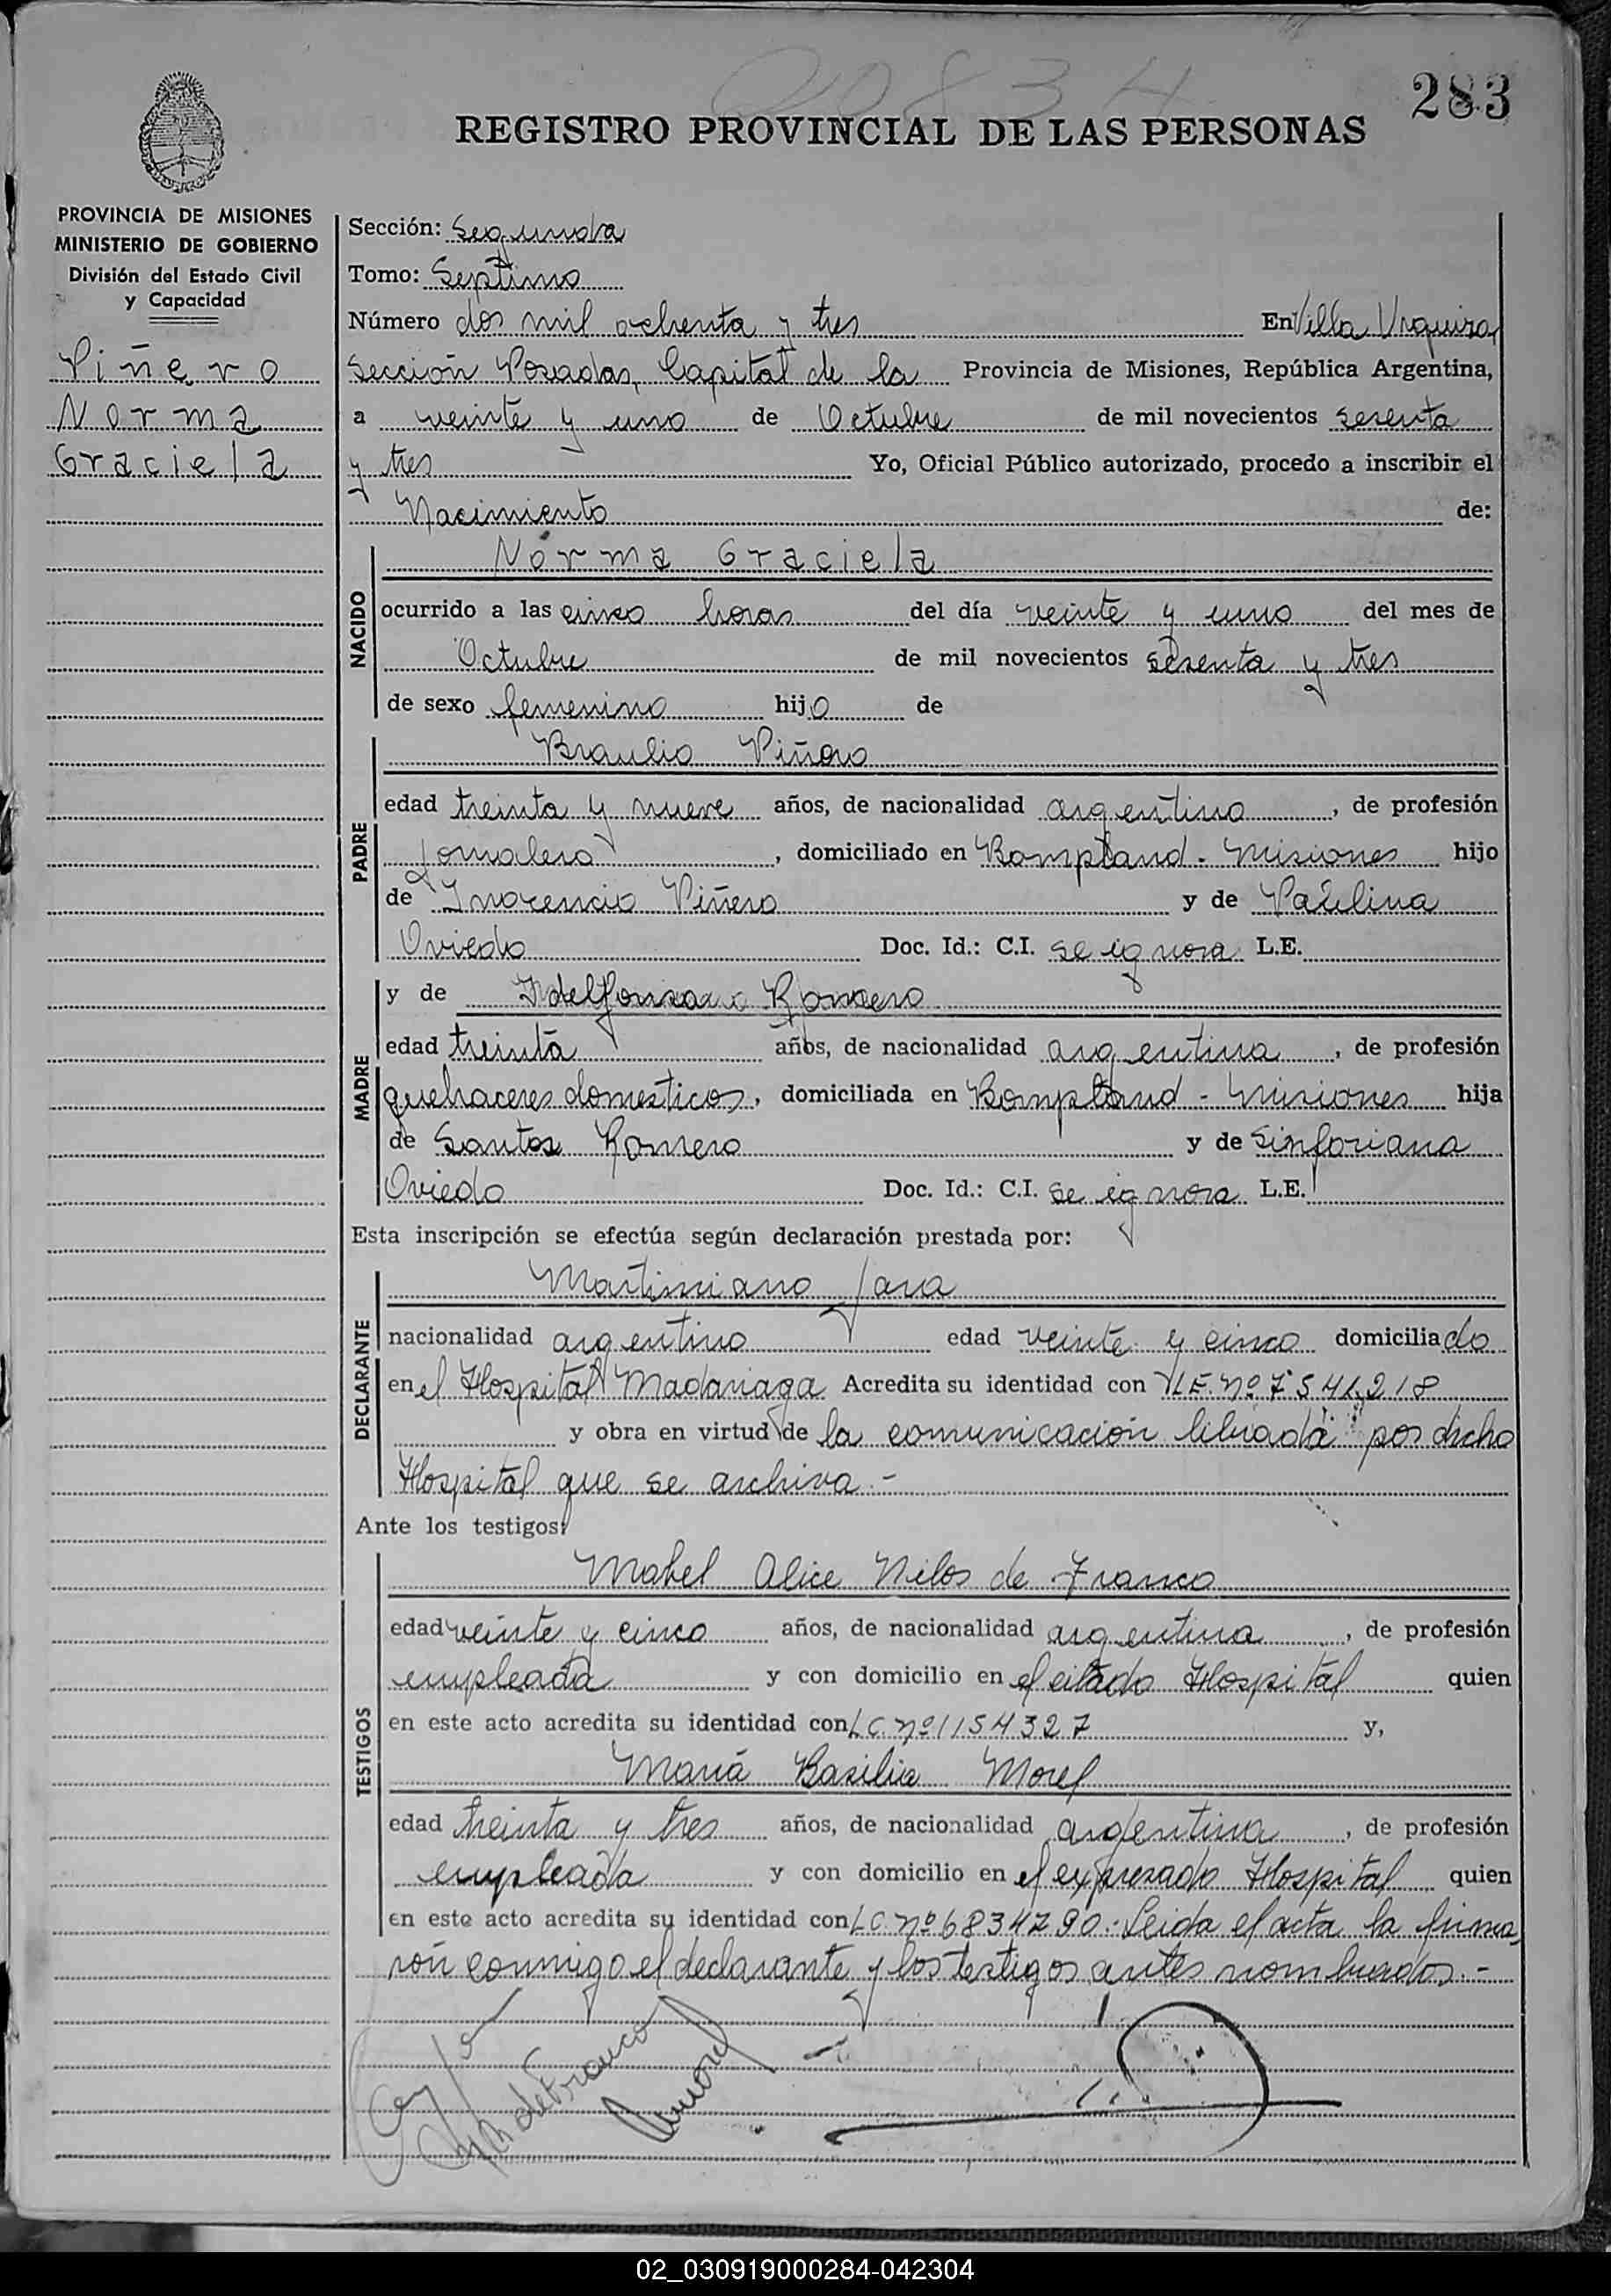 283
REGISTRO PROVINCIAL DE LAS PERSONAS
PROVINCIA DE MISIONES
MINISTERIO DE GOBIERNO
División del Estado Civil
y Capacidad
Piñero
Norma
Graciela
Sección: Segunda
Tomo: Septimo
Número dos mil ochenta y tres En Villa Urquiza
Sección Posadas, Capital de la Provincia de Misiones, República Argentina,
a veinte y uno de Octubre de mil novecientos sesenta
y tres Yo, Oficial Público autorizado, procedo a inscribir el
Nacimiento de:
NACIDO
Norma Graciela
ocurrido a las cinco horas del día veinte y uno del mes de
Octubre de mil novecientos sesenta y tres
de sexo femenino hijo de
PADRE
Braulio Piñero
edad treinta y nueve años, de nacionalidad argentino, de profesión
Jornalero, domiciliado en Bompland - Misiones hijo
de Inocencio Piñero y de Paulina
Oviedo Doc. Id.: C.I. se ignora L.E.
MADRE
y de Romero
edad treinta años, de nacionalidad argentina, de profesión
quehaceres domesticos, domiciliada en Bompland - Misiones hija
de Santos Romero y de Sinforiana
Oviedo Doc. Id.: C.I. se ignora L.E.
Esta inscripción se efectúa según declaración prestada por:
DECLARANTE
Martimiano Jara
nacionalidad argentino edad veinte y cinco domiciliado
en el Hospital Madariaga Acredita su identidad con L.E. Nº 7541218
y obra en virtud de la comunicación librada por dicho
Hospital que se archiva.-
Ante los testigos:
TESTIGOS
Mabel Alice de Franco
edad veinte y cinco años, de nacionalidad argentina, de profesión
empleada y con domicilio en el citado Hospital quien
en este acto acredita su identidad con L.C. Nº 1154327 y,
María Basilia Morel
edad treinta y tres años, de nacionalidad argentina, de profesión
empleada y con domicilio en el expresado Hospital quien
en este acto acredita su identidad con L.C. Nº 6834790.- Leida el acta la firma
rón conmigo el declarante y los testigos antes nombrados.-
de Franco
02_030919000284-042304